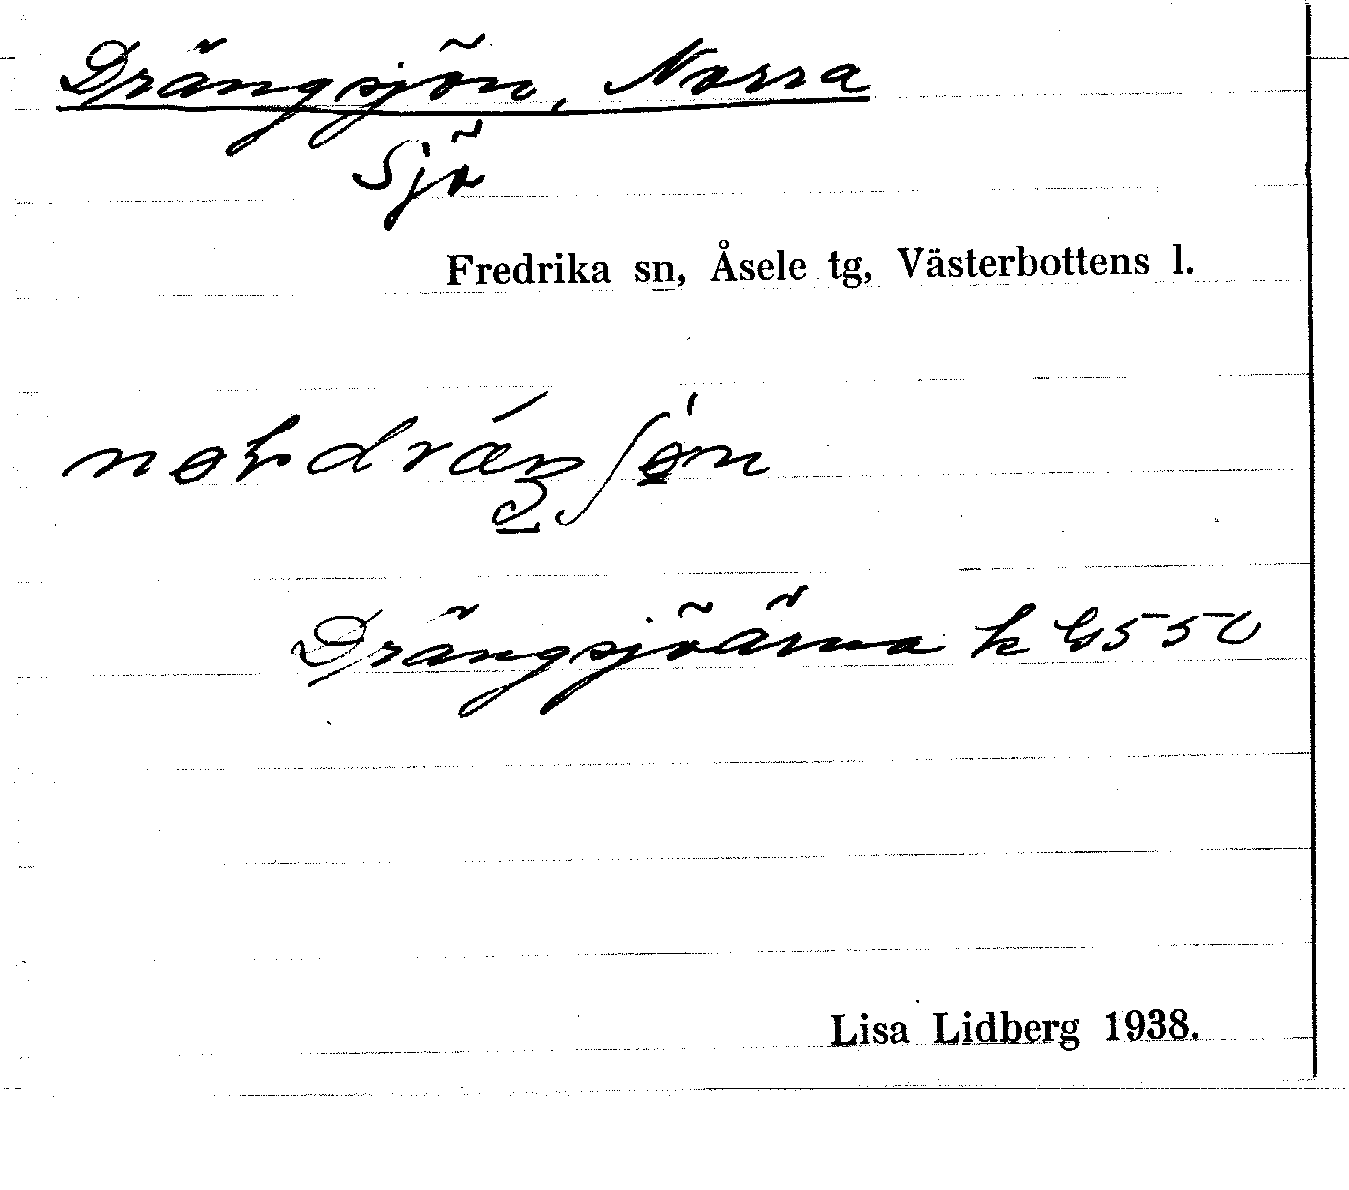 Drängsjön, Norra
Sjö
Fredrika sn, Åsele tg, Västerbottens l.
Drängsjöärna k G550
Lisa Lidberg 1938.